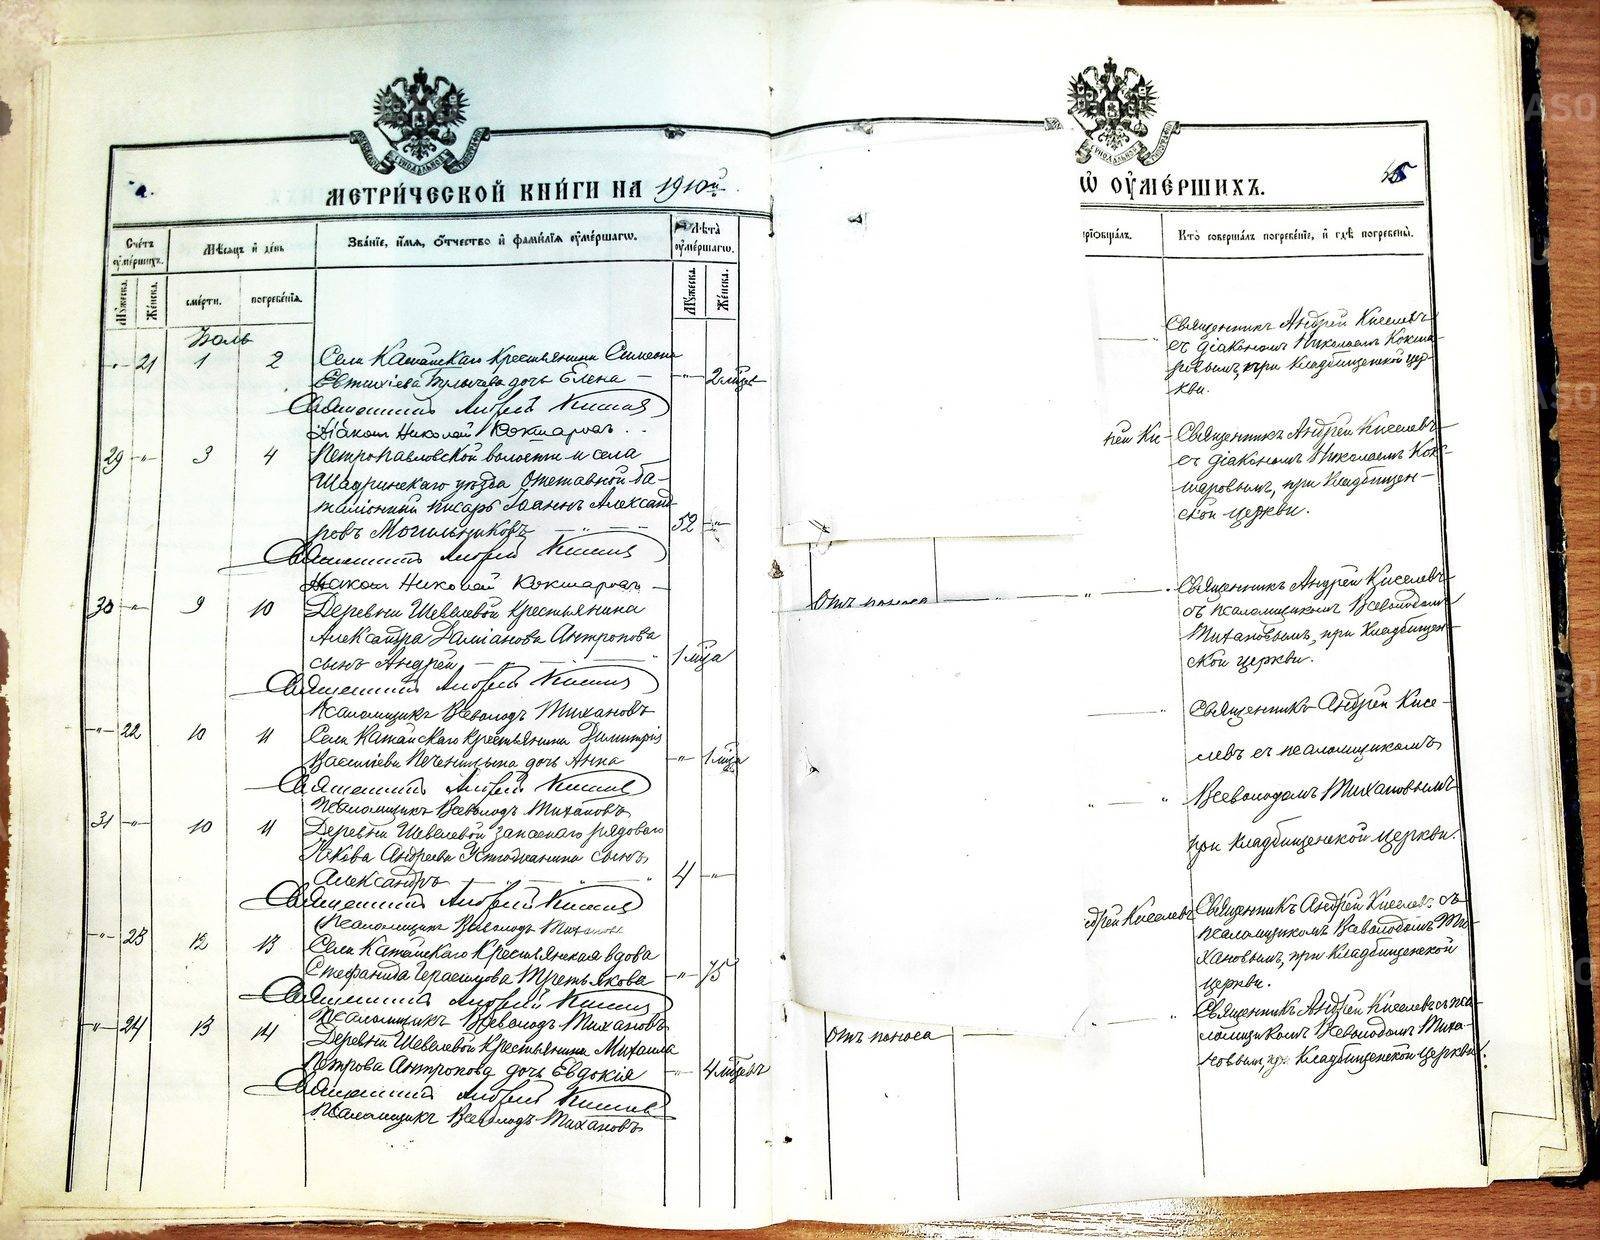 МЕТРИ́ЧЕСКОЙ КНИ́ГИ НА 1910й
Ѡ ОУМЕ́РШИХЪ.
Счетъ оумершихъ.
Мѣсяцъ и день
Званіе, имя, отчество и фамилія оумершагω.
Лѣта оумершагω.
пріобщалъ.
Кто совершалъ погребеніе, и гдѣ погребены.
Мужеска.
Женска.
смерти.
погребенія.
Мужеска.
Женска.
Іюль
21 1 2 Села Катайскаго крестьянина Симеона
Евтихіева Булычева дочь Елена 2 мцев
Священникъ Андрей Киселев
Діаконъ Николай Кокшаровъ
29 3 4 Петропавловской волости и села
Шадринскаго уѣзда отставной ба-
таліонный писарь Іоаннъ Александ-
ровъ Могильниковъ 52
Священникъ Андрей Киселев
Діаконъ Николай Кокшаровъ
30 9 10 Деревни Шевелевой крестьянина
Александра Даміанова Антропова
сынъ Андрей 1 мца
Священникъ Андрей Киселев
Псаломщикъ Всеволодъ Тихановъ
22 10 11 Села Катайскаго крестьянина Димитрія
Василіева Печеницына дочь Анна 1 мца
Священникъ Андрей Киселев
Псаломщикъ Всеволодъ Тихановъ
31 10 11 Деревни Шевелевой запаснаго рядоваго
Іакова Андреева сынъ
Александръ 4
Священникъ Андрей Киселев
Псаломщикъ Всеволодъ Тихановъ
23 12 13 Села Катайскаго Крестьянская вдова
Стефанида Герасимова Третьякова 75
Священникъ Андрей Киселев
Псаломщикъ Всеволодъ Тихановъ
24 13 14 Деревни Шевелевой Крестьянина Михаила
Петрова Антропова дочь Евдокія 4 мцевъ
Священникъ Андрей Киселев
Псаломщикъ Всеволодъ Тихановъ
Священникъ Андрей Киселевъ
съ діакономъ Николаемъ Кокша-
ровымъ, при Кладбищенской цер-
кви.
рей Ки-
Священникъ Андрей Киселевъ
съ діакономъ Николаемъ Кок-
шаровымъ, при Кладбищен-
ской церкви.
Отъ поноса
Священникъ Андрей Киселевъ
съ псаломщикомъ Всеволодомъ
Тихановымъ, при Кладбищен-
ской церкви.
Священникъ Андрей Кисе-
левъ съ псаломщикомъ
Всеволодомъ Тихановымъ
при Кладбищенской церкви.
дрей Киселевъ
Священникъ Андрей Киселевъ съ
псаломщикомъ Всеволодомъ Ти-
хановымъ, при Кладбищенской
церкви.
Отъ поноса
Священникъ Андрей Киселевъ съ пса-
ломщикомъ Всеволодомъ Тиха-
новым, при Кладбищенской церкви.